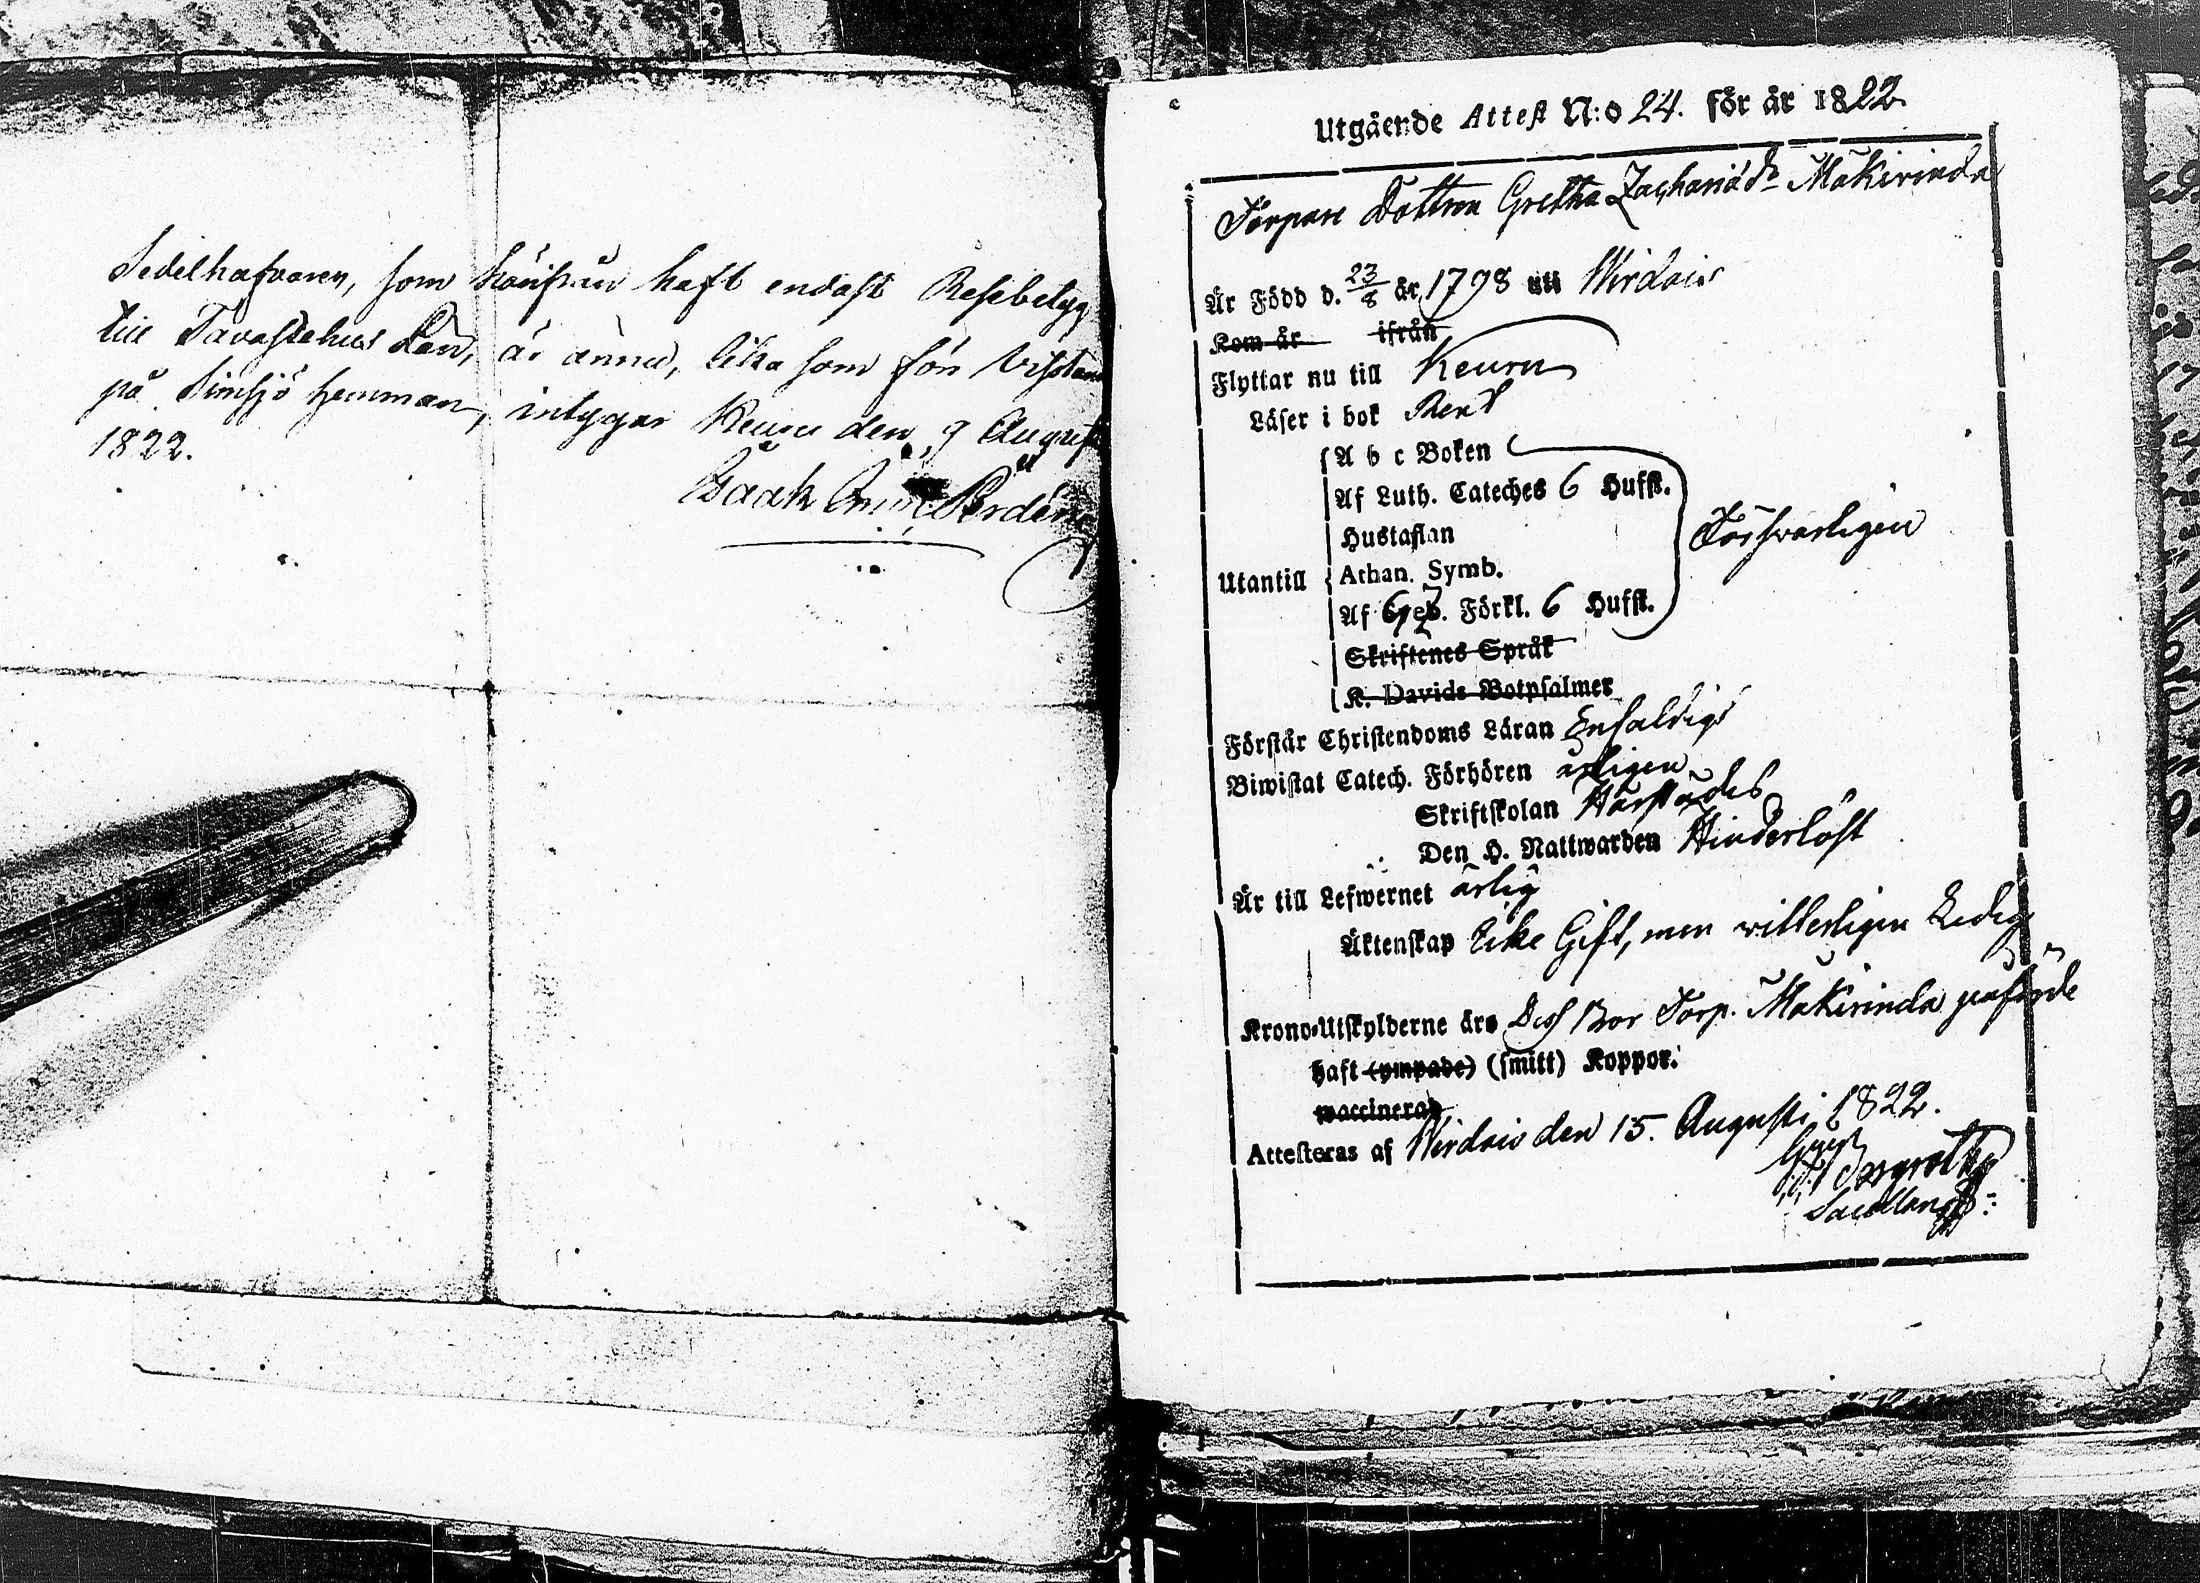 Sedelhafvaren, som härifrån haft endast Resebetyg
till Tavastehus Län, är ännu, lika som för vistan
på Simsjö hemman, intygar Keuru den 9 August
1822.
Isaak
Utgående Attest N:o 24. för år 1822
Torpare Dottren Gretha Zachariæd:r Mäkirinda
Är Född d. 23/8 år 1798 uti Wirdois
Kom år ifrån
Flyttar nu till Keuru
Läser i bok Rent
A b c Boken
Af Luth. Cateches 6 Hufst.
Hustaflan
Försvarligen
Utantill Athan. Symb.
Af Förkl. 6 Hufst.
Skriftenes Språk
K. Davids Botpsalmer
Förstår Christendoms Läran Enfaldigt
Biwistat Catech. Förhören årligen
Skriftskolan Härstädes
Den H. Nattwarden Hinderlöst
Är till Lefwernet ärlig
Äktenskap Icke Gift, men witterligen Ledig
Krono-Utskylderne äro Torp. Mäkirinda påförde
haft (ympade) (smitt) Koppor.
waccinerad
Attesteras af Wirdois den 15. Augusti 1822.